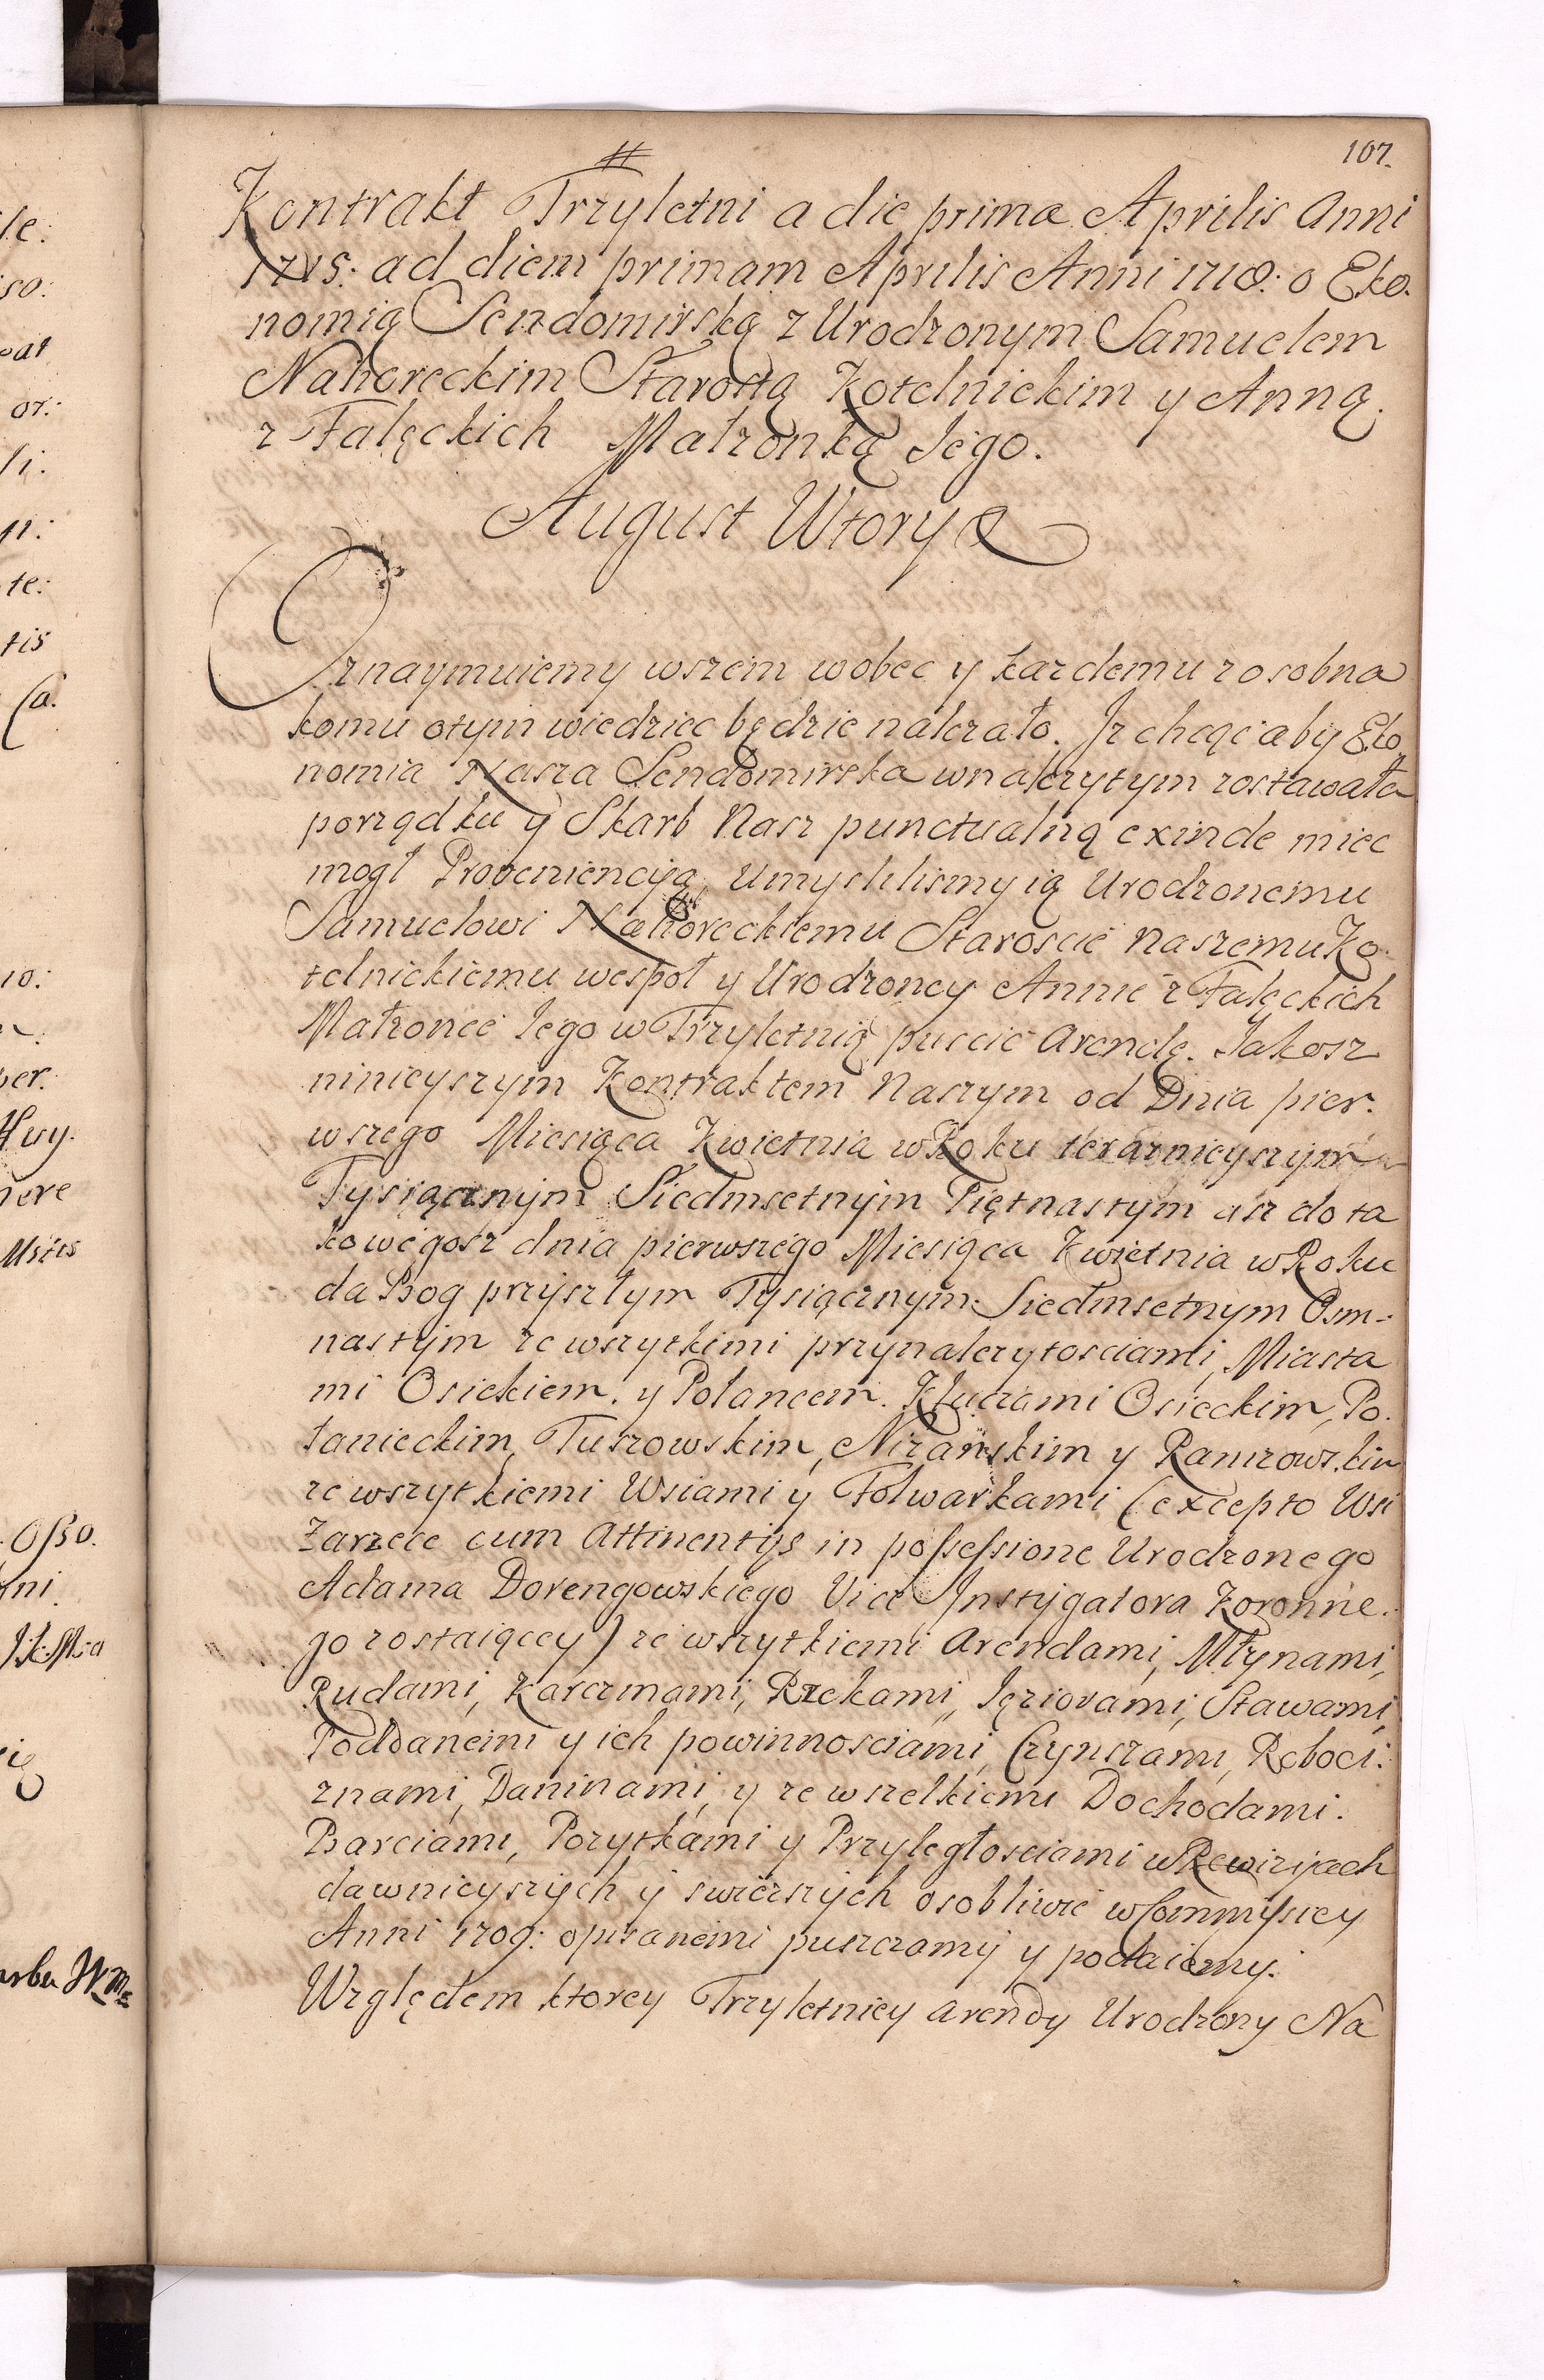 107.
Kontrakt Trzyletni a die prima Aprilis Anni
1715. ad diem primam Aprilis Anni 1718. o Eko.
nomią Sendomirską z Urodzonym Samuelem
Nahoreckim Starostą Kotelnickim y Anną
z Fałęckich Małzonką Jego.
August Wtory &
Oznaymuiemy wszem wobec y kazdemu zosobna
komu otym wiedziec będzie nalezało. Iz chcąc aby Eko
nomia Nasza Sendomirska wnalezytym zostawała
porządku y Skarb Nasz punctualną exinde miec
mogł Proveniencyją, Umyslilismy ią Urodzonemu
Samuelowi Nahoreckiemu Staroscie Naszemu Ko
telnickiemu wespoł y Urodzoney Annie z Fałęckich
Małzonce Jego w Trzyletnią puscić Arendę. Jakosz
ninieyszym Kontraktem Naszym od Dnia pier.
wszego Miesiąca Kwietnia w Roku teraznieyszym
Tysiącznym Siedmsetnym Piętnastym asz do ta
kowegosz dnia pierwszego Miesiąca Kwietnia w Roku
da Bog przyszłym Tysiącznym Siedmsetnym Osm-
nastym ze wszytkimi przynalezytosciami, Miasta
mi Osiekiem. y Połancem. Kluczami Osieckim, Po.
łanieckim, Tuszowskim, Nizanskim y Ranizowskim
ze wszytkiemi Wsiami y Folwarkami (excepto Wsi
Zarzecze cum Attinentijs in possessione Urodzonego
Adama Dorengowskiego Vice Instygatora Koronne.
go zostaiącey) ze wszytkiemi Arendami, Młynami,
Rudami, Karczmami, Rzekami, Jęziorami, Stawami,
Poddanemi y ich powinnosciami, Czynszami, Roboci.
znami, Daninami, y ze wszelkiemi Dochodami.
Barciami, Pozytkami y Przyległosciami w Rewizijach
dawnieyszych y swieszych osobliwie w Commissiey
Anni 1709. opisanemi puszczamy y podaiemy.
Względem ktorey Trzyletniey Arendy Urodzony Na